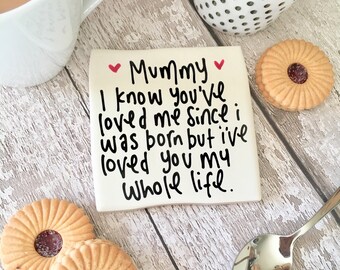 Mummy
I know you've
loved me since i
was born but i've
loved you my
whole life.